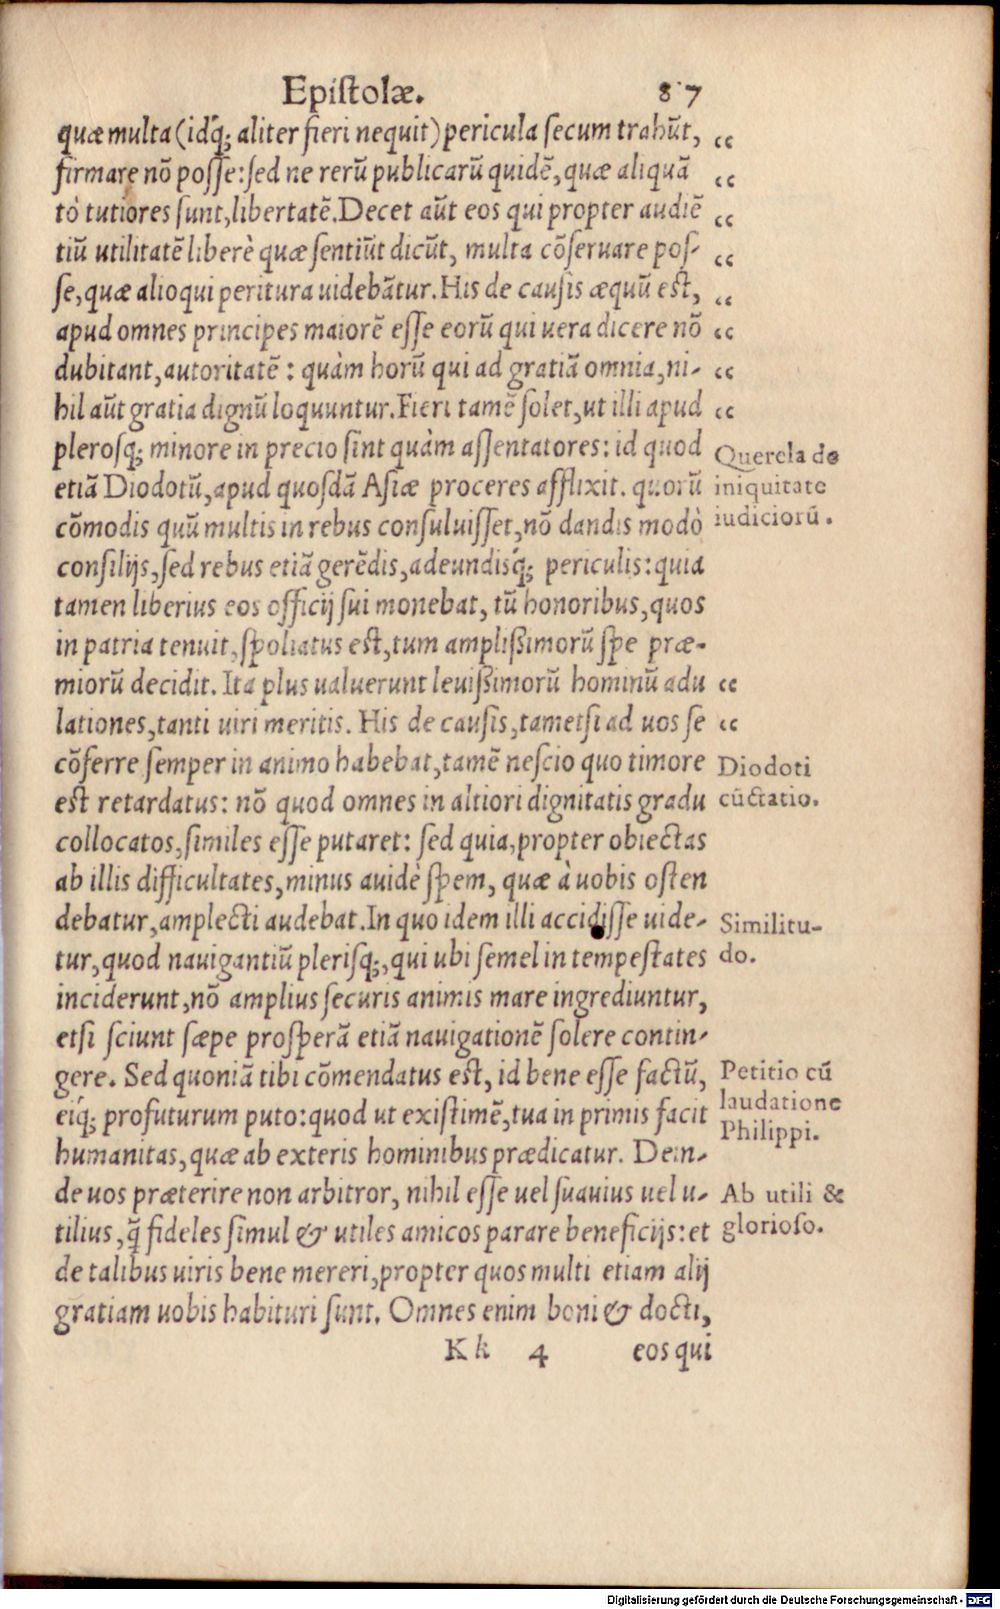 Epistolæ. 87
quæ multa (idq́; aliter fieri nequit) pericula secum trahūt, “
firmare nō posse: sed ne rerū publicarū quidē, quæ aliquā “
tò tutiores sunt, libertatē. Decet aūt eos qui propter audiē “
tiū utilitatē liberè quæ sentiūt dicūt, multa cōseruare pos- “
se, quæ alioqui peritura uidebātur. His de causis æquū est, “
apud omnes principes maiorē esse eorū qui uera dicere nō “
dubitant, autoritatē: quàm horū qui ad gratiā omnia, ni- “
hil aūt gratia dignū loquuntur. Fieri tamē solet, ut illi apud “
plerosq; minore in precio sint quàm assentatores: id quod
etiā Diodotū, apud quosdā Asiæ proceres afflixit. quorū
cōmodis quū multis in rebus consuluisset, nō dandis modò
consilijs, sed rebus etiā gerēdis, adeundisq́; periculis: quia
tamen liberius eos officij sui monebat, tū honoribus, quos
in patria tenuit, spoliatus est, tum amplißimorū spe præ-
miorū decidit. Ita plus ualuerunt leuißimorū hominū adu “
lationes, tanti uiri meritis. His de causis, tametsi ad uos se “
cōferre semper in animo habebat, tamē nescio quo timore
est retardatus: nō quod omnes in altiori dignitatis gradu
collocatos, similes esse putaret: sed quia, propter obiectas
ab illis difficultates, minus auidè spem, quæ à uobis osten
debatur, amplecti audebat. In quo idem illi accidisse uide-
tur, quod nauigantiū plerisq;, qui ubi semel in tempestates
inciderunt, nō amplius securis animis mare ingrediuntur,
etsi sciunt sæpe prosperā etiā nauigationē solere contin-
gere. Sed quoniā tibi cōmendatus est, id bene esse factū,
eiq́; profuturum puto: quod ut existimē, tua in primis facit
humanitas, quæ ab exteris hominibus prædicatur. Dein-
de uos præterire non arbitror, nihil esse uel suauius uel u-
tilius, q̄ fideles simul & utiles amicos parare beneficijs: et
de talibus uiris bene mereri, propter quos multi etiam alij
gratiam uobis habituri sunt. Omnes enim boni & docti,
Kk 4 eos qui
Querela de
iniquitate
iudiciorū.
Diodoti
cūctatio.
Similitu-
do.
Petitio cū
laudatione
Philippi.
Ab utili &
glorioso.
Digitalisierung gefördert durch die Deutsche Forschungsgemeinschaft - DFG